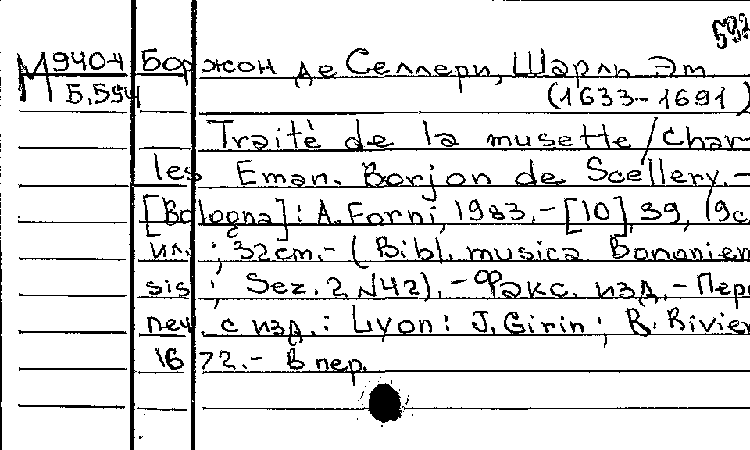 М 940-4 Боржон де Селлери, Шарль Эм.
Б.594 (1633-1691)
Traité de la musette / Char
les Eman. Borjon de Scellery. –
[Bologna] : A. Forni, 1983. – [10], 39, 19с.
ил. ; 32cm. – (Bibl. musica Bononien
sis ; Sez. 2 N42). – Факс. изд. – Пере
печ. с изд. : Lyon : J. Girin ; B. Rivier
1672. – В пер.